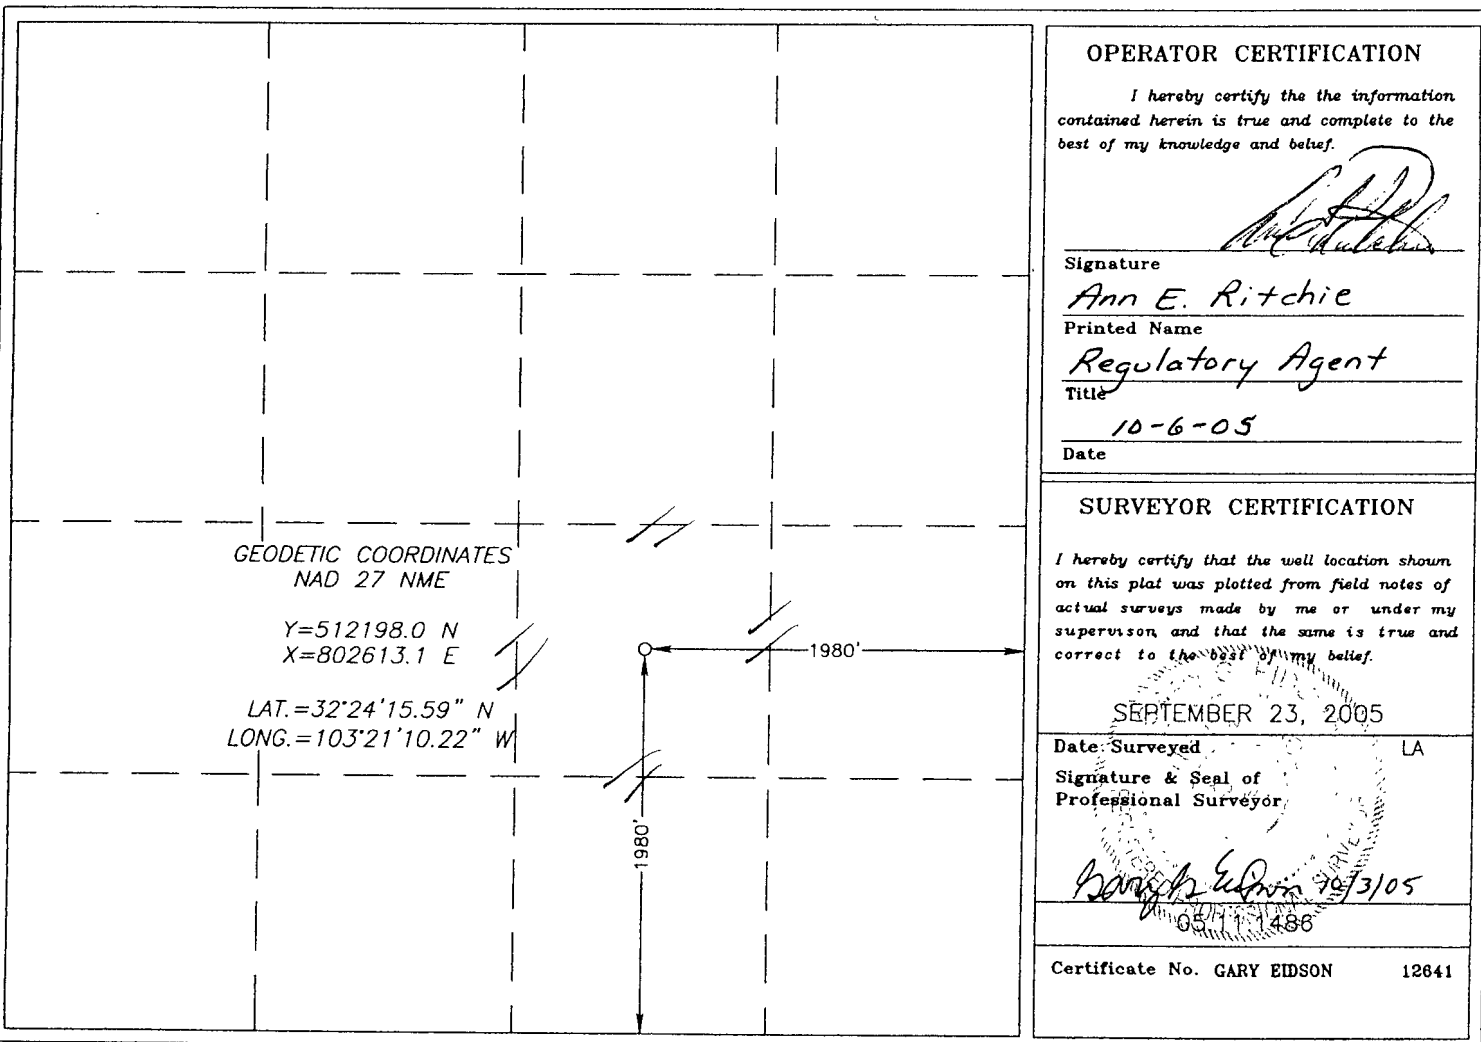 GEODETIC COORDINATES
NAD 27 NME
Y=512198.0 N
X=802613.1 E
LAT.=32°24'15.59" N
LONG.=103°21'10.22" W
1980'
1980'
OPERATOR CERTIFICATION
I hereby certify the the information
contained herein is true and complete to the
best of my knowledge and belief.
Signature
Ann E. Ritchie
Printed Name
Regulatory Agent
Title
10-6-05
Date
SURVEYOR CERTIFICATION
I hereby certify that the well location shown
on this plat was plotted from field notes of
actual surveys made by me or under my
supervison, and that the same is true and
correct to the best of my belief.
SEPTEMBER 23, 2005
Date Surveyed LA
Signature & Seal of
Professional Surveyor
Gary G Eidson 10/3/05
05.11.1486
Certificate No. GARY EIDSON 12641